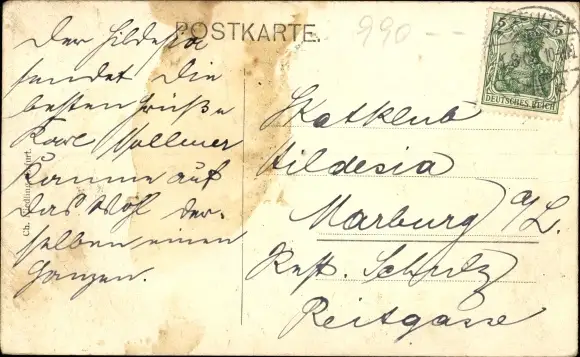 POSTKARTE.
990 --
5 5
DEUTSCHES REICH
Der Hildesia
sendet die
besten Grüße
Karl Vollmer
Komme auf
das Wohl der-
selben einen
Ganzen.
Skatklub
Hildesia
Marburg a/L.
Rest. Schulz
Reitgasse